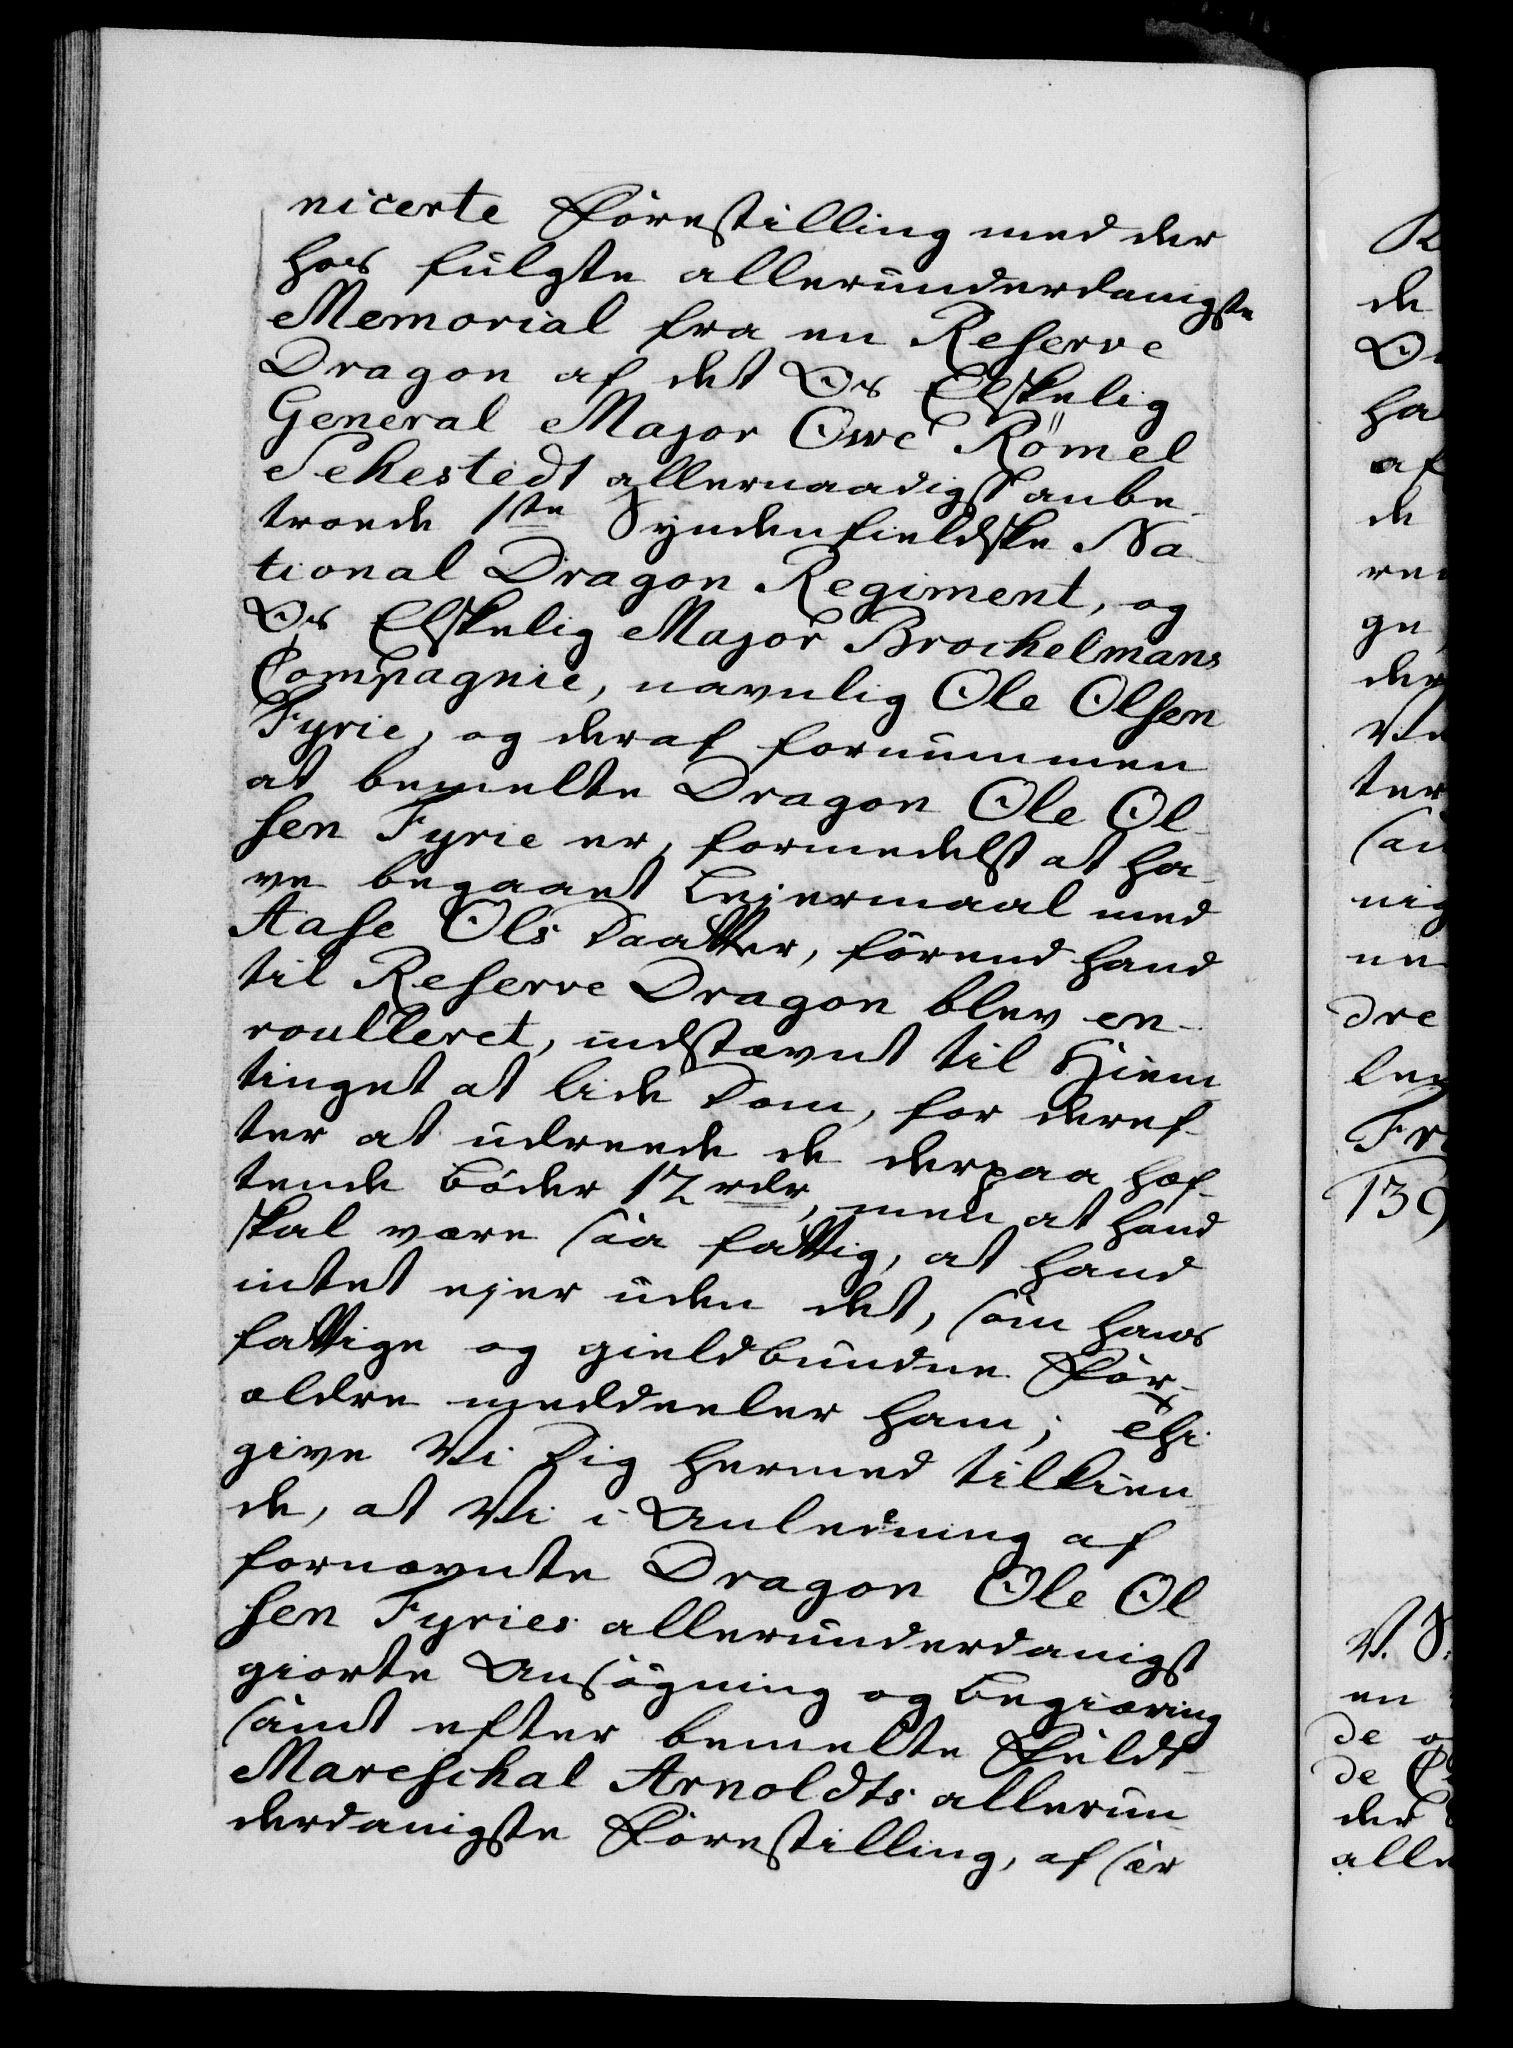 nicerte Forestilling med der
hos fulgte allerunderdanigste
Memorial fra en Reserve
Dragon af det Os Elskelig
General Major Owe Römel
Sehestedt allernaadigst anbe-
troede 1ste Syndenfieldske Na-
tional Dragon Regiment, og
Os Elskelig Major Brockelmans
Compagnie, navnlig Ole Olsen
Fyrie, og deraf fornummen
at bemelte Dragon Ole Ol-
sen Fyrie er, formedelst at ha-
ve begaaet Lejermaal med
Aase Ols Daatter, förend hand
til Reserve Dragon blev en-
roulleret, indstævnt til Hiem-
tinget at lide Dom, for deref-
ter at udreede de derpaa hæf-
tende Böder 12 rdr, men at hand
skal være saa fattig, at hand
intet ejer uden det, som hans
fattige og gieldbundne For-
ældre meddeeler ham; Thi
give Vi Dig hermed tilkien-
de, at Vi i Anledning af
fornævnte Dragon Ole Ol
sen Fyries allerunderdanigst
giorte Ansögning og Begiæring
samt efter bemelte Feldt-
Mareschal Arnoldts allerun-
derdanigste Forestilling, af sær
de
ha
af
de
ge
der
ter
nig
ne
dre
Fr
139
V. S.
en
de
de
der
alle